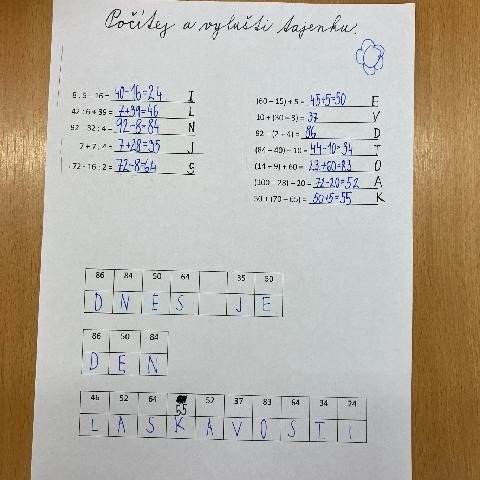 Počítej a vylušti tajenku.
8 · 5 – 16 = 40-16=24 I
42 : 6 + 39 = 7+39=46 L
92 – 32 : 4 = 92-8=84 N
7 + 7 · 4 = 7+28=35 J
72 – 16 : 2 = 72-8=64 S
(60 – 15) + 5 = 45+5=50 E
10 + (30 – 3) = 37 V
92 – (2 + 4) = 86 D
(84 – 40) – 10 = 44-10=34 T
(14 + 9) + 60 = 23+60=83 O
(100 – 28) – 20 = 72-20=52 A
50 + (70 – 65) = 50+5=55 K
86 84 50 64 35 50
D N E S J E
86 50 84
D E N
46 52 64 55 52 37 83 64 34 24
L A S K A V O S T I